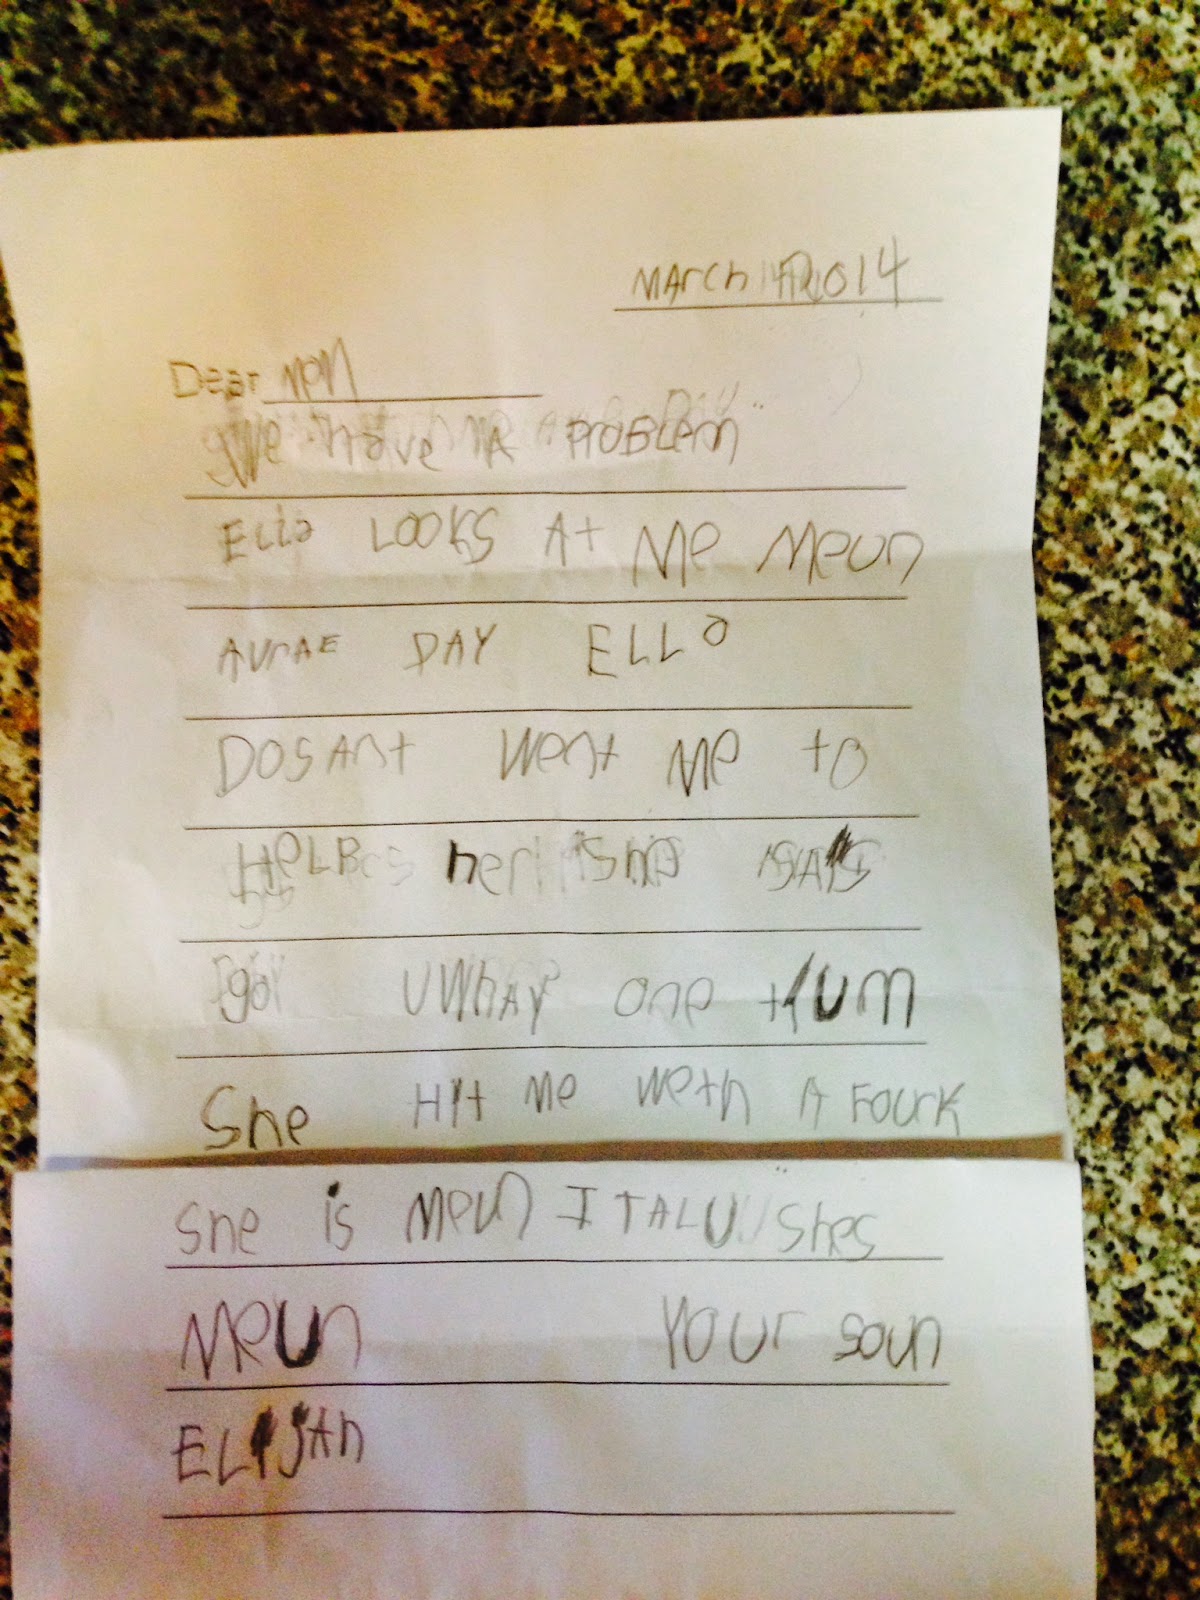 MArch 14 2014
Dear Mom
We have A ProBLem
Ella LOOKS At Me Meun
AvrAE DAY ELLa
DOSAnt Went Me to
HeLP her she SAiS
go UWhAY one tHUM
She Hit me weth A Fourk
She is Meun I TALU Shes
Meun Your soun
ELijAh